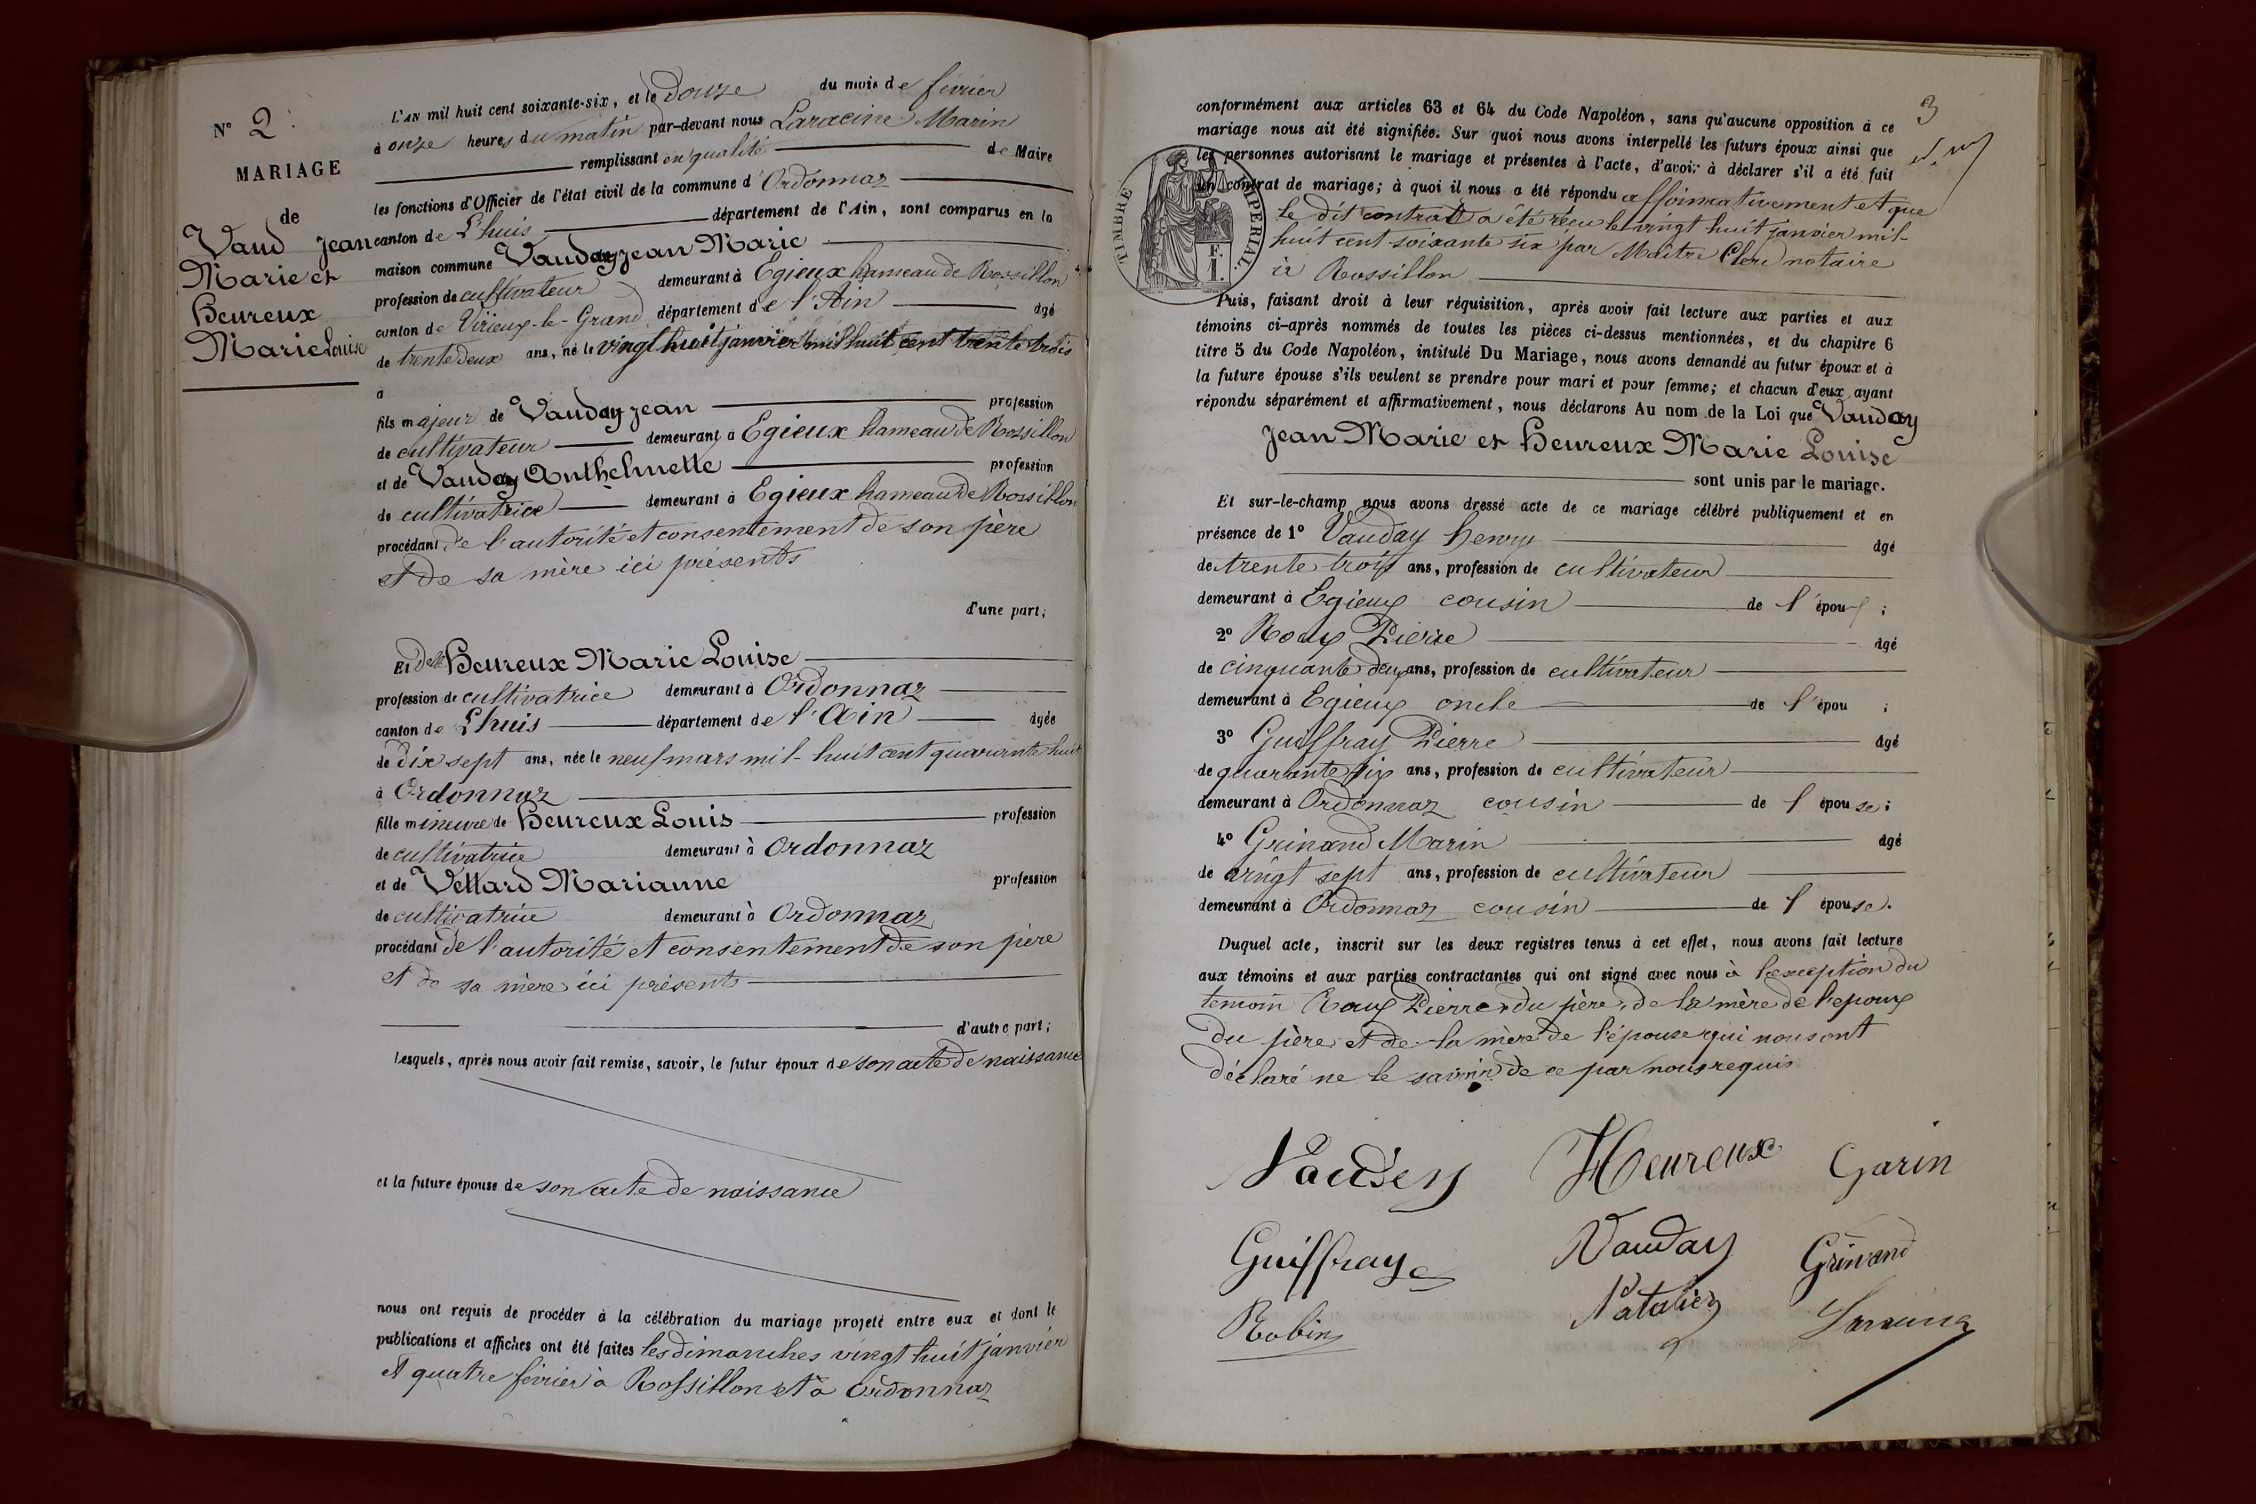 N° 2
MARIAGE
de
Vaud Jean
Marie et
Heureux
Marie Louise
L'AN mil huit cent soixante-six, et le Douze du mois de février
à onze heures du matin par-devant nous Laracine Marin
remplissant en qualité de Maire
les fonctions d'Officier de l'état civil de la commune d'Ordonnaz
canton de Lhuis département de l'Ain, sont comparus en la
maison commune Vauday Jean Marie
profession de cultivateur demeurant à Egieux hameau de Rossillon
canton de Virieux-le-Grand département de l'Ain âgé
de trente deux ans, né le vingt huit janvier mil huit cent trente trois
à
fils majeur de Vauday Jean profession
de cultivateur demeurant à Egieux hameau de Rossillon
et de Vauday Anthelmette profession
de cultivatrice demeurant à Egieux hameau de Rossillon
procédant de l'autorité et consentement de son père
et de sa mère ici présents
d'une part;
Et delle Heureux Marie Louise
profession de cultivatrice demeurant à Ordonnaz
canton de Lhuis département de l'Ain âgée
de dix sept ans, née le neuf mars mil-huit cent quarante huit
à Ordonnaz
fille mineure de Heureux Louis profession
de cultivatrice demeurant à Ordonnaz
et de Vettard Marianne profession
de cultivatrice demeurant à Ordonnaz
procédant de l'autorité et consentement de son père
et de sa mère ici présents
d'autre part;
Lesquels, après nous avoir fait remise, savoir, le futur époux de son acte de naissance
et la future épouse de son acte de naissance
nous ont requis de procéder à la célébration du mariage projeté entre eux et dont le
publications et affiches ont été faites les dimanches vingt huit janvier
et quatre février à Rossillon et à Ordonnaz
3
conformément aux articles 63 et 64 du Code Napoléon, sans qu'aucune opposition à ce
mariage nous ait été signifiée. Sur quoi nous avons interpellé les futurs époux ainsi que
les personnes autorisant le mariage et présentes à l'acte, d'avoir à déclarer s'il a été fait
un contrat de mariage; à quoi il nous a été répondu affirmativement et que
le dit contrat a été reçu le vingt huit janvier mil-
huit cent soixante six par Maître Clerc notaire
à Rossillon
TIMBRE IMPERIAL.
F.
1.
Puis, faisant droit à leur réquisition, après avoir fait lecture aux parties et aux
témoins ci-après nommés de toutes les pièces ci-dessus mentionnées, et du chapitre 6
titre 5 du Code Napoléon, intitulé Du Mariage, nous avons demandé au futur époux et à
la future épouse s'ils veulent se prendre pour mari et pour femme; et chacun d'eux ayant
répondu séparément et affirmativement, nous déclarons Au nom de la Loi que Vauday
Jean Marie et Heureux Marie Louise
sont unis par le mariage.
Et sur-le-champ nous avons dressé acte de ce mariage célébré publiquement et en
présence de 1° Vauday henry âgé
de trente trois ans, profession de cultivateur
demeurant à Egieux cousin de l'époux;
2° Roux Pierre âgé
de cinquante deux ans, profession de cultivateur
demeurant à Egieux oncle de l'épou ;
3° Guiffray Pierre âgé
de quarante six ans, profession de cultivateur
demeurant à Ordonnaz cousin de l'épouse;
4° Grinand Marin âgé
de vingt sept ans, profession de cultivateur
demeurant à Ordonnaz cousin de l'épouse.
Duquel acte, inscrit sur les deux registres tenus à cet effet, nous avons fait lecture
aux témoins et aux parties contractantes qui ont signé avec nous à l'exception du
temoin Roux Pierre, du père, de la mère de l'epoux
du père et de la mère de l'épouse qui nous ont
déclaré ne le savoir de ce par nous requis
Vauday Heureux Garin
Guiffray Vauday Grinand
Robin Laracine